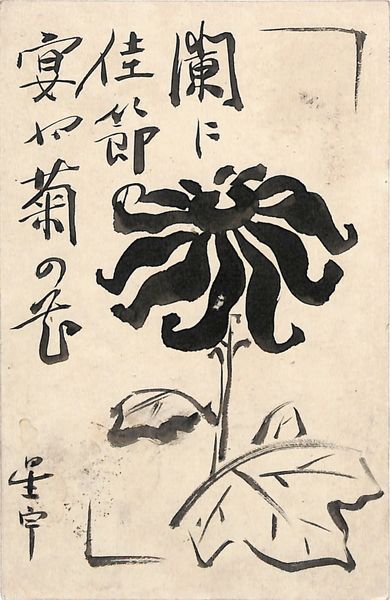 闌に
佳節の
宴や菊の花
星宇